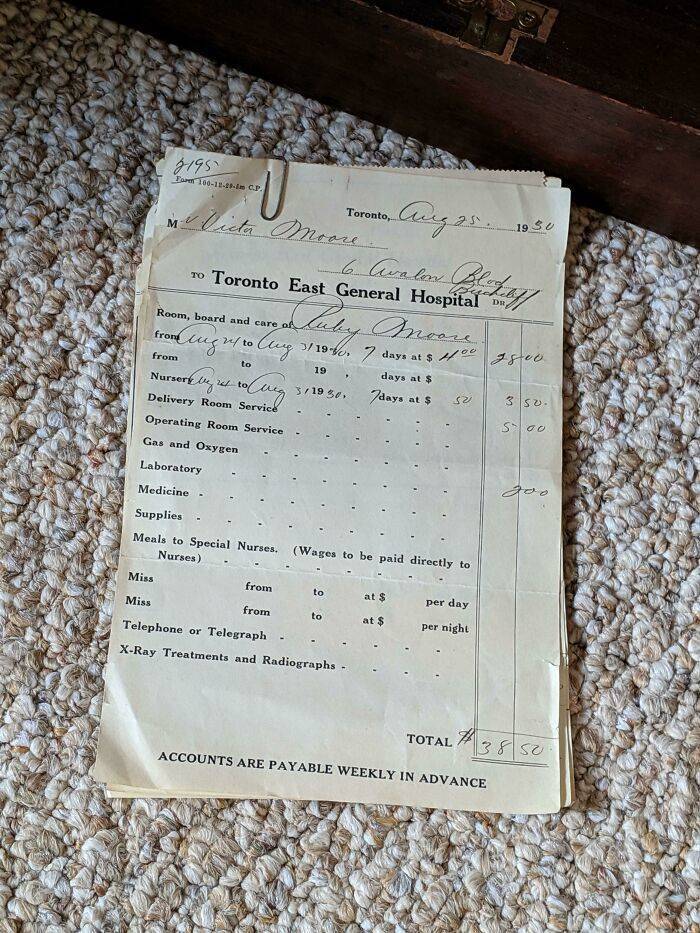 2195
Form 100-12-29-5m C.P.
Toronto, Aug 25. 1930
M r Victor Moore.
6 Avalon Blvd
TO Toronto East General Hospital DR.
Room, board and care of Ruby Moore
from Aug 24 to Aug 31 1930, 7 days at $ 4 00 28 00
from to 19 , days at $
Nursery Aug 24 to Aug 31 1930, 7 days at $ 50 3 50
Delivery Room Service - - - - -
Operating Room Service - - - - 5 00
Gas and Oxygen - - - - -
Laboratory - - - - - -
Medicine - - - - - - 2 00
Supplies - - - - - -
Meals to Special Nurses. (Wages to be paid directly to
Nurses) - - - - - -
Miss from to at $ per day
Miss from to at $ per night
Telephone or Telegraph - - - - -
X-Ray Treatments and Radiographs - - - -
TOTAL $ 38 50
ACCOUNTS ARE PAYABLE WEEKLY IN ADVANCE